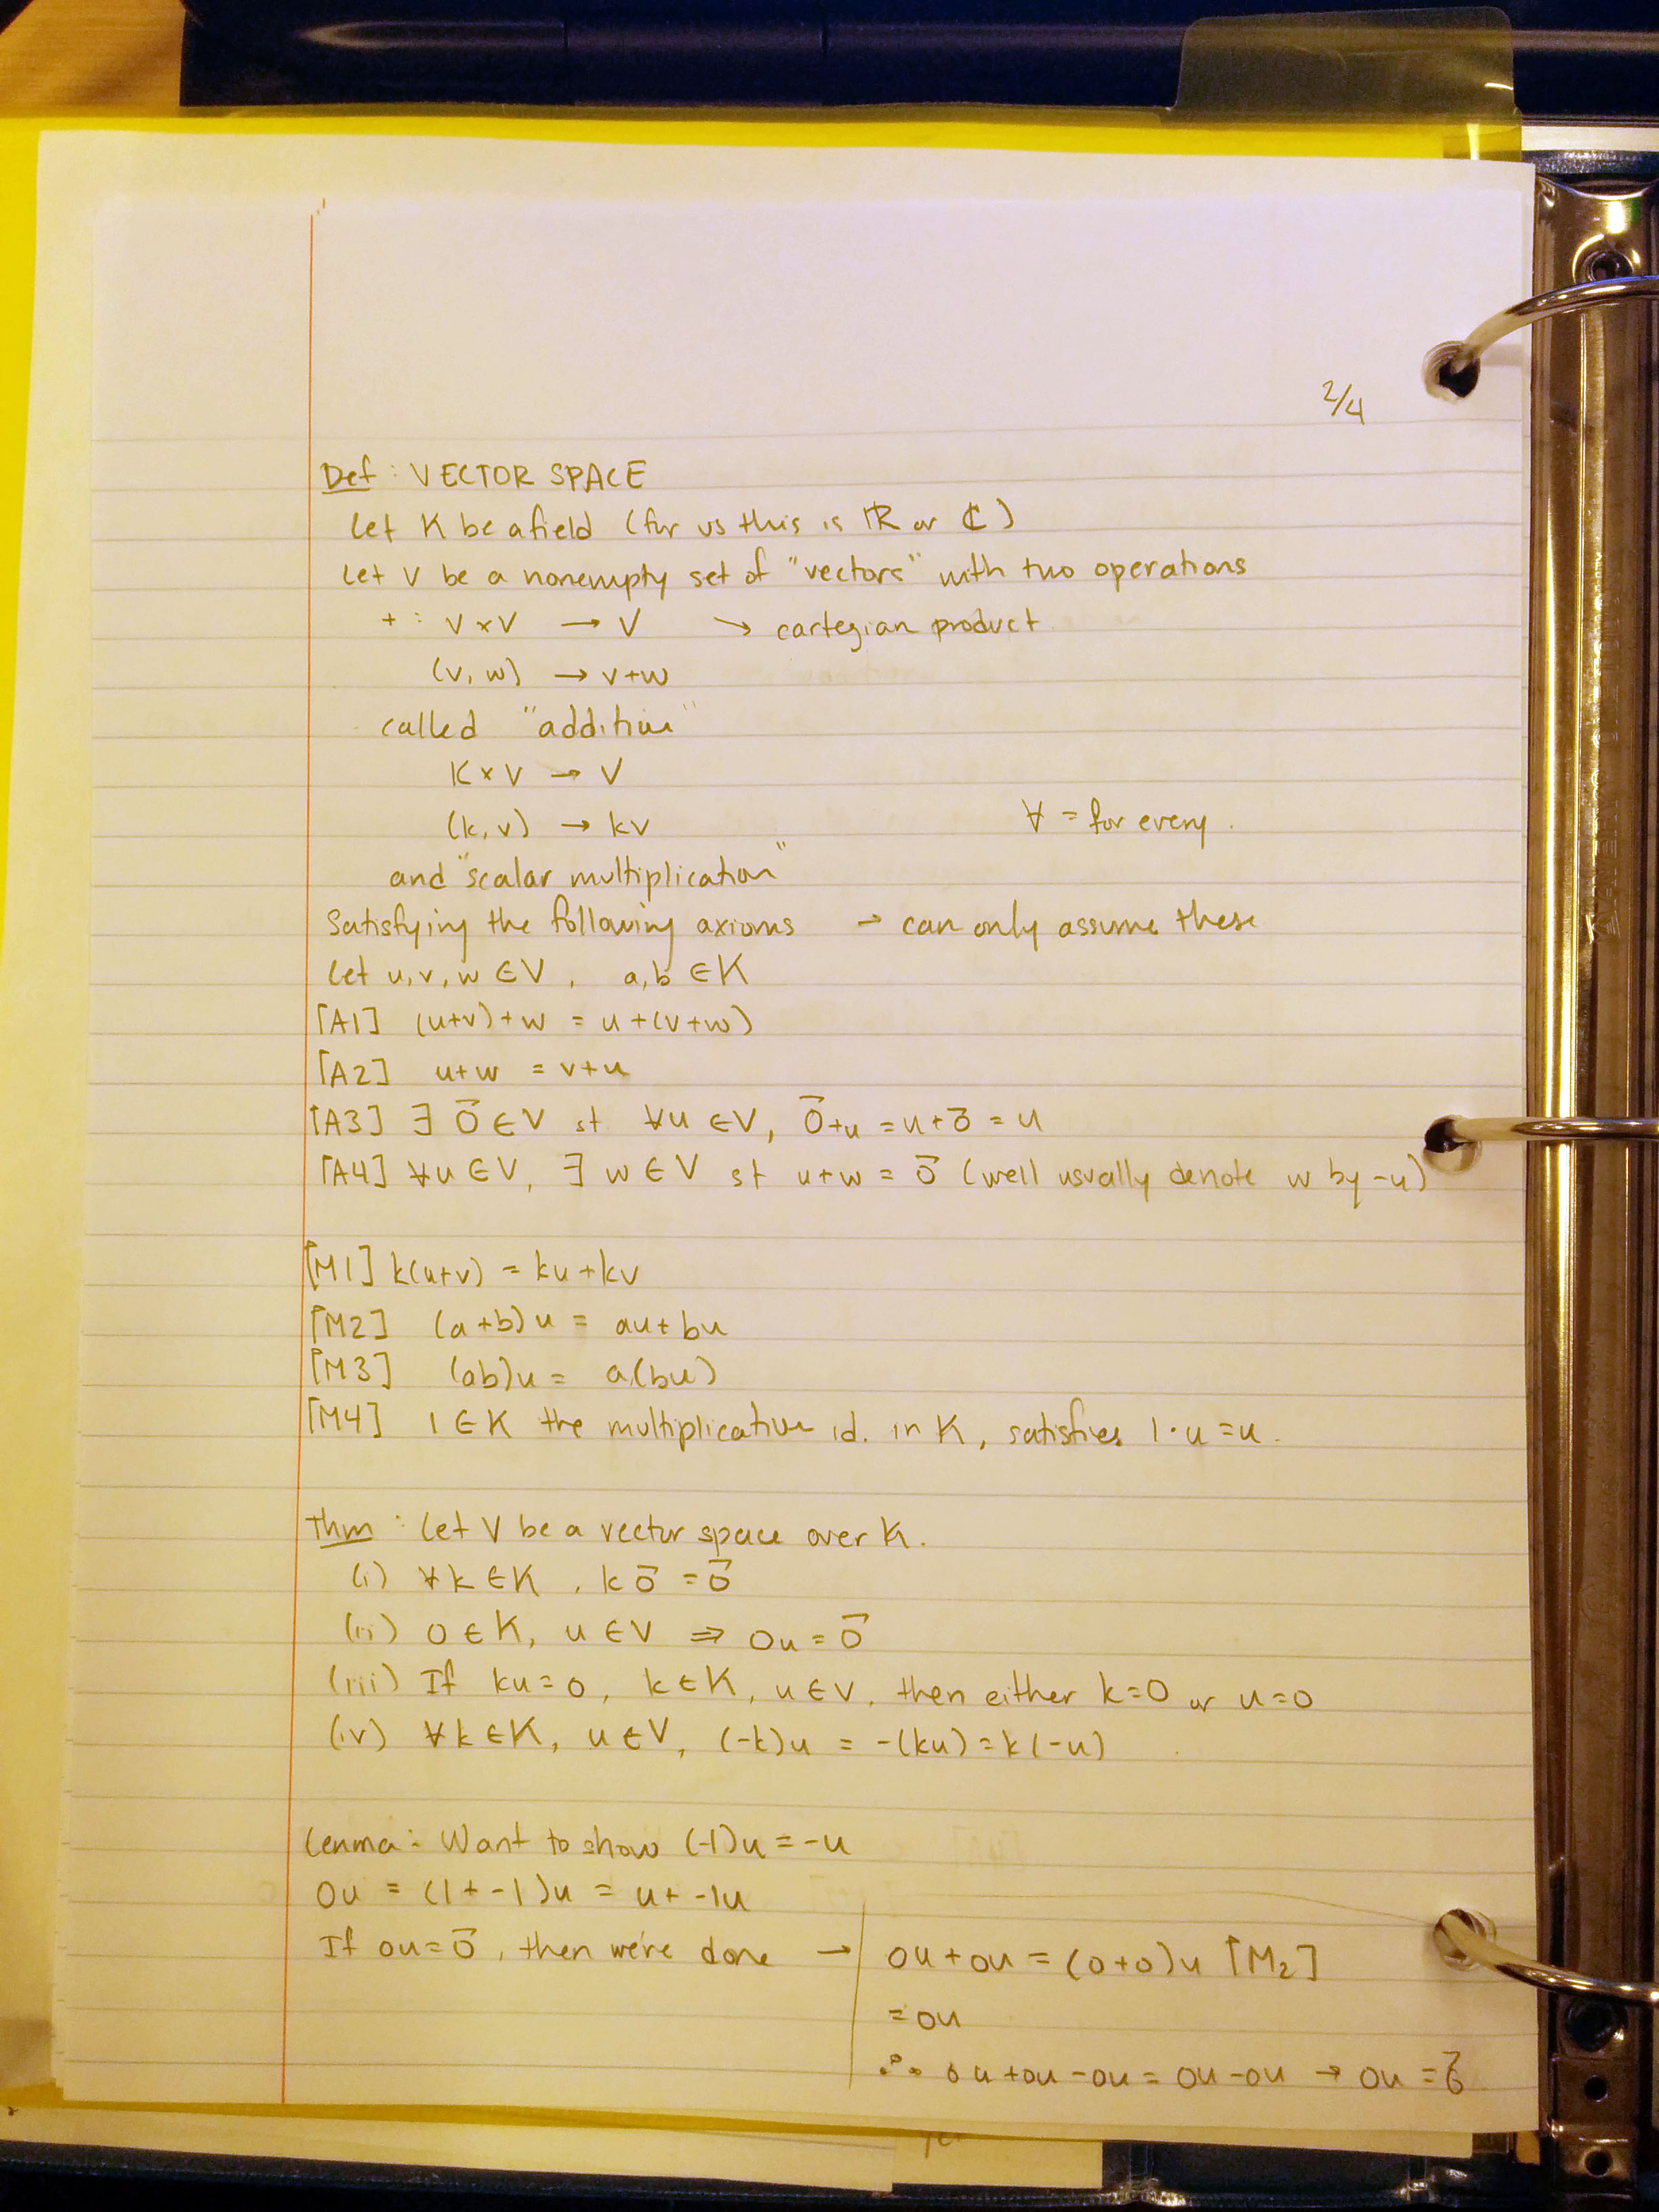 2/4
Def : VECTOR SPACE
Let K be a field (for us this is ℝ or ℂ)
Let V be a nonempty set of "vectors" with two operations
+ : V × V → V ↘ cartesian product
(v, w) → v+w
called "additive"
K × V → V
(k, v) → kv ∀ = for every.
and "scalar multiplication"
Satisfying the following axioms → can only assume these
Let u, v, w ∈ V, a, b ∈ K
[A1] (u+v)+w = u+(v+w)
[A2] u+w = v+u
[A3] ∃ 0⃗ ∈ V st ∀u ∈ V, 0⃗+u = u+0⃗ = u
[A4] ∀u ∈ V, ∃ w ∈ V st u+w = 0⃗ (well usually denote w by -u)
[M1] k(u+v) = ku+kv
[M2] (a+b)u = au+bu
[M3] (ab)u = a(bu)
[M4] 1 ∈ K the multiplicative id. in K, satisfies 1·u = u.
Thm : Let V be a vector space over K.
(i) ∀k ∈ K, k0⃗ = 0⃗
(ii) 0 ∈ K, u ∈ V ⇒ 0u = 0⃗
(iii) If ku=0, k ∈ K, u ∈ V, then either k=0 or u=0
(iv) ∀k ∈ K, u ∈ V, (-k)u = -(ku) = k(-u)
Lemma: Want to show (-1)u = -u
0u = (1+-1)u = u+-1u
If 0u=0⃗, then we're done → 0u+0u = (0+0)u [M2]
= 0u
∴ 0u+0u-0u = 0u-0u → 0u = 0⃗